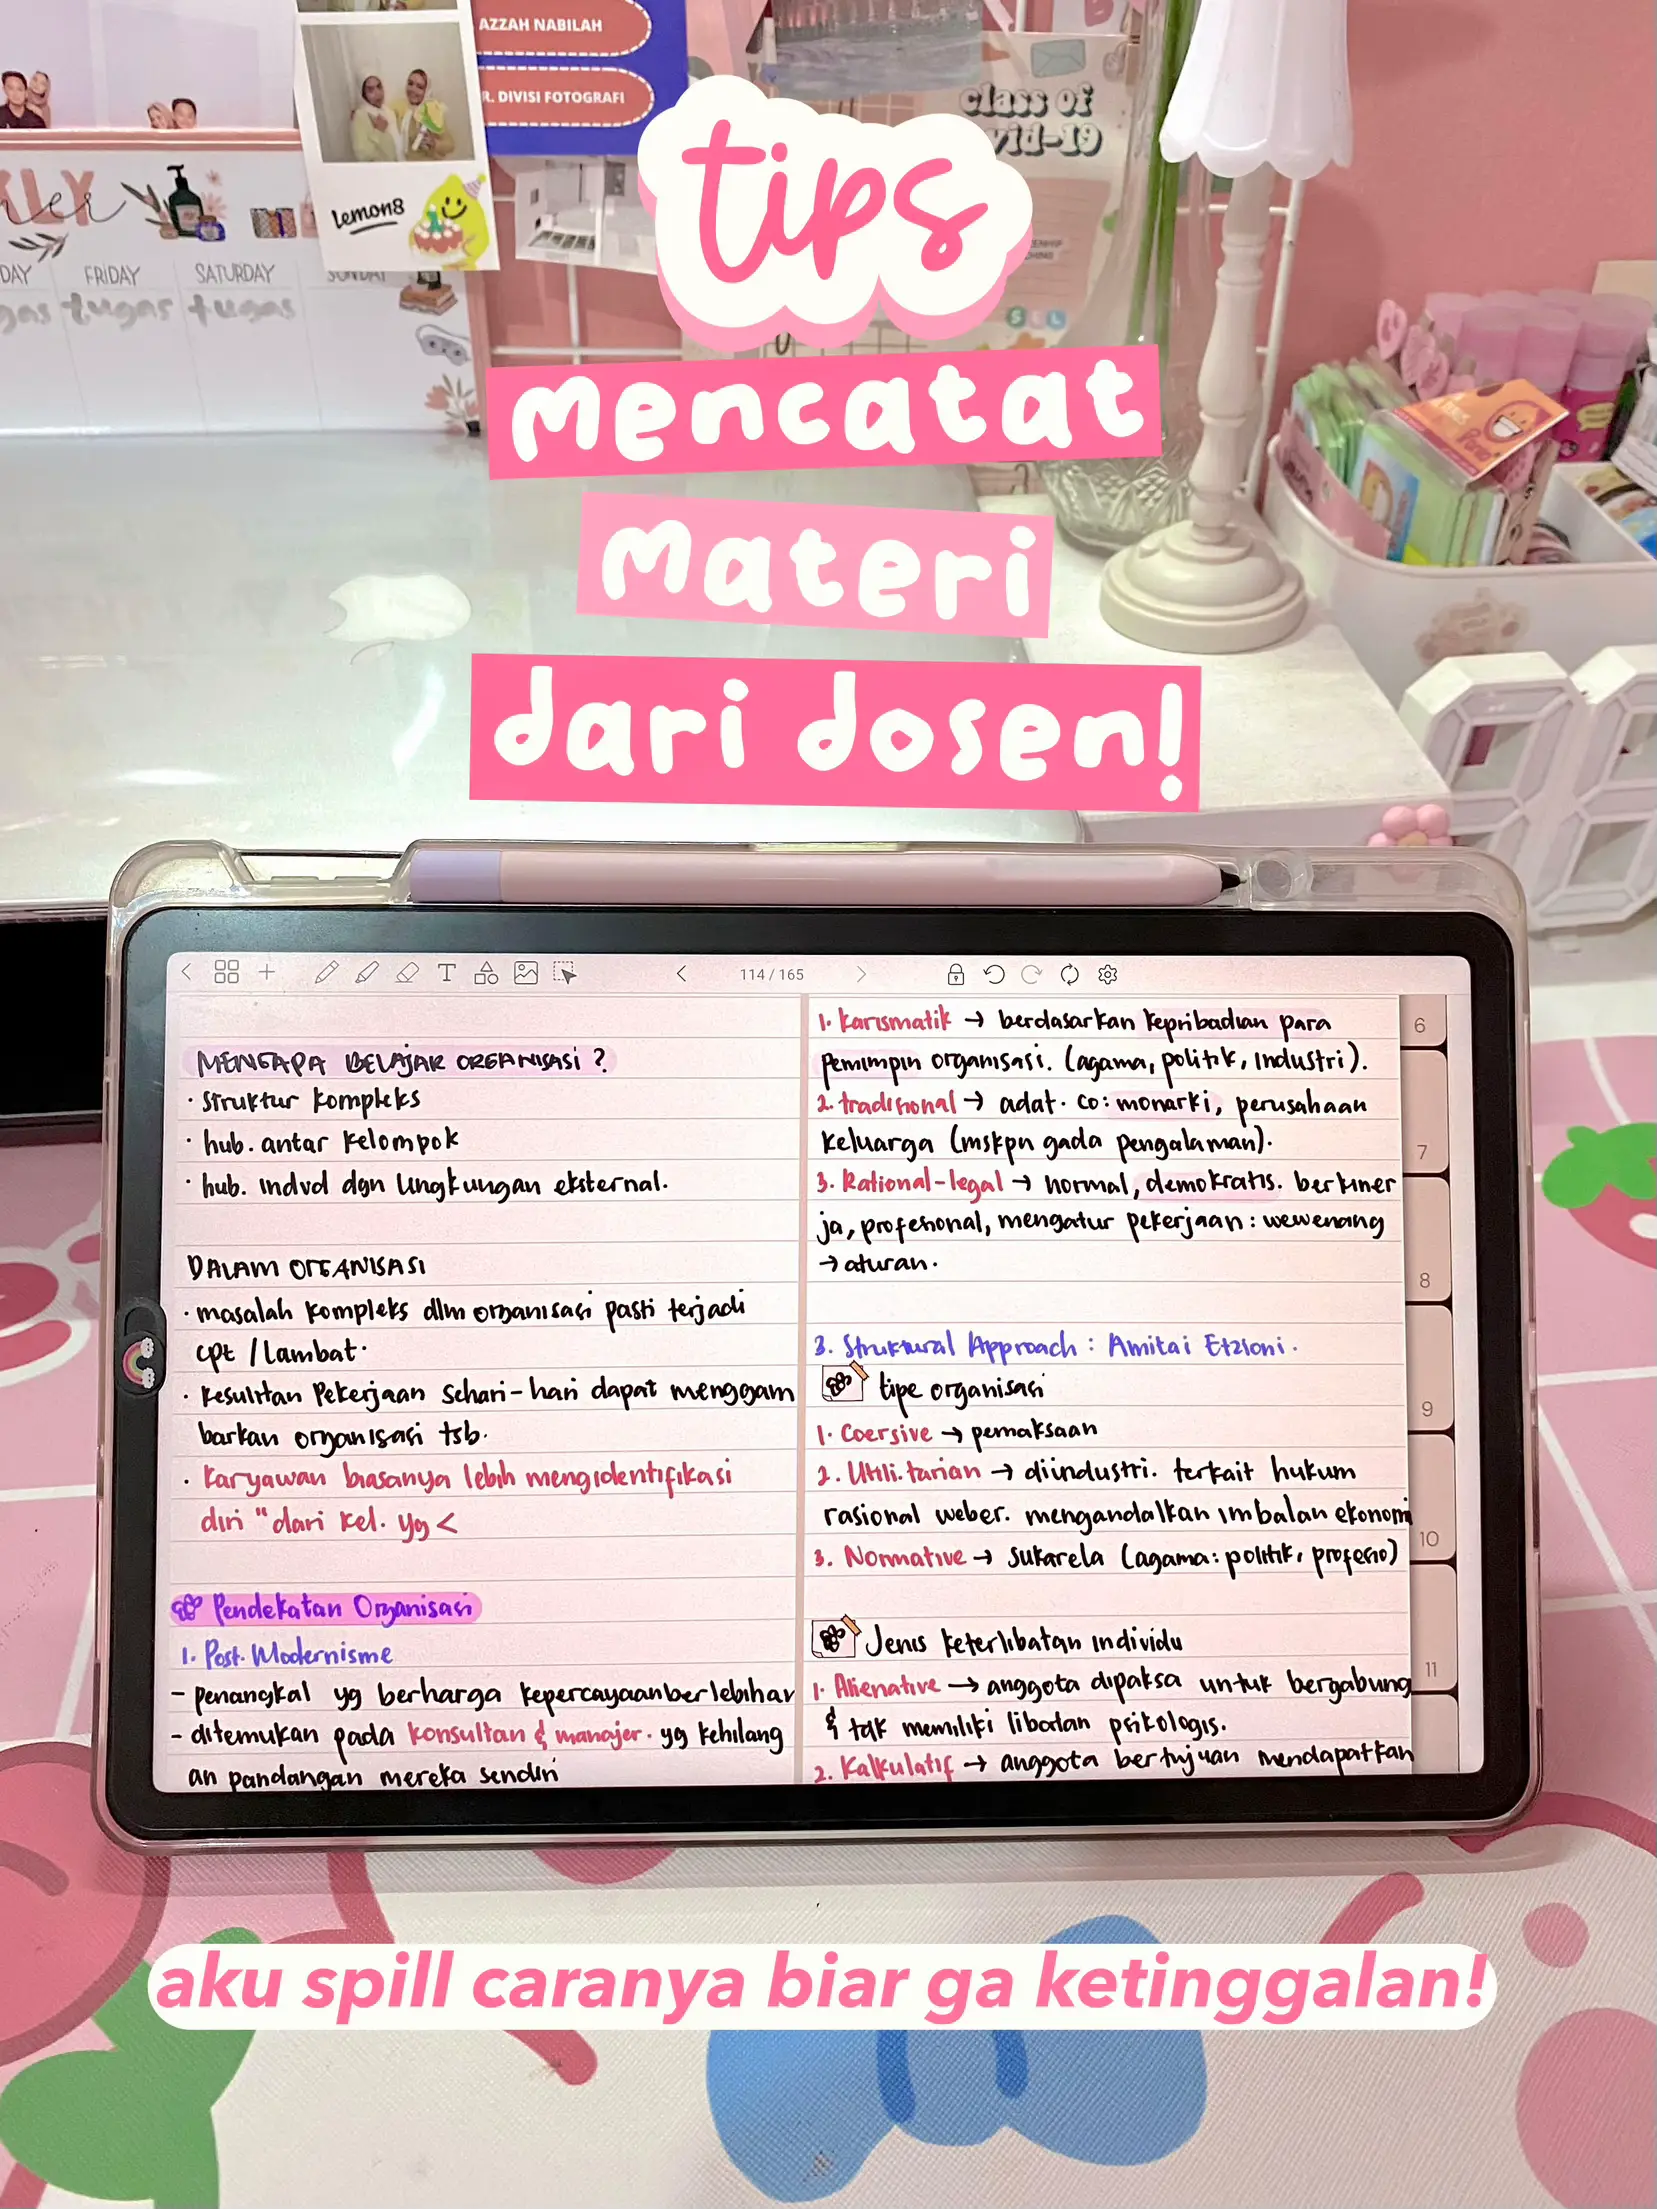 AZZAH NABILAH
R. DIVISI FOTOGRAFI
lemon8
class of
vid-19
FRIDAY
SATURDAY
SUNDAY
tugas tugas
tips
mencatat
materi
dari dosen!
T
114 / 165
MENGAPA BELAJAR ORGANISASI ?
· Struktur kompleks
· hub. antar kelompok
· hub. indvd dgn lingkungan eksternal.
DALAM ORGANISASI
· masalah kompleks dlm organisasi pasti terjadi
cpt / lambat.
· kesulitan pekerjaan sehari-hari dapat menggam
barkan organisasi tsb.
· karyawan biasanya lebih mengidentifikasi
diri "dari kel. yg <
Pendekatan Organisasi
1. Post. Modernisme
- penangkal yg berharga kepercayaan berlebihan
- ditemukan pada konsultan & manajer. yg kehilang
an pandangan mereka sendiri
1. Karismatik → berdasarkan kepribadian para
pemimpin organisasi. (agama, politik, industri).
2. tradisional → adat. co: monarki, perusahaan
keluarga (mskpn gada pengalaman).
3. Rational-legal → normal, demokratis. berkiner
ja, profesional, mengatur pekerjaan : wewenang
→ aturan.
3. Struktural Approach : Amitai Etzioni.
tipe organisasi
1. Coersive → pemaksaan
2. Utili.tarian → diindustri. terkait hukum
rasional weber. mengandalkan imbalan ekonomi
3. Normative → sukarela (agama: politik, profesio)
Jenis keterlibatan individu
1. Alienative → anggota dipaksa untuk bergabung
& tdk memiliki libatan psikologis.
2. Kalkulatif → anggota bertujuan mendapatkan
6
7
8
9
10
11
aku spill caranya biar ga ketinggalan!